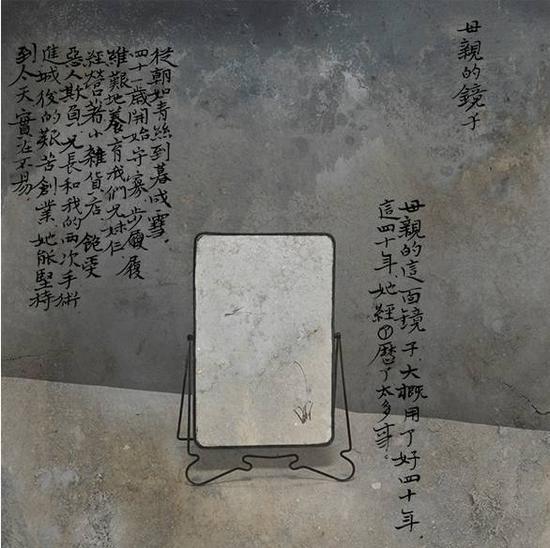 母親的鏡子
母親的這面镜子,大概用了好四十年,
這四十年,她經①歷了太多事。
從朝如青絲到暮成雪,
四十一歲開始守寡,步履
維艱地養育我們兄妹仨,
經營著小雜貨店,飽受
惡人欺負,兄長和我的兩次手術
進城後的艱苦創業,她能堅持
到今天,實在不易。